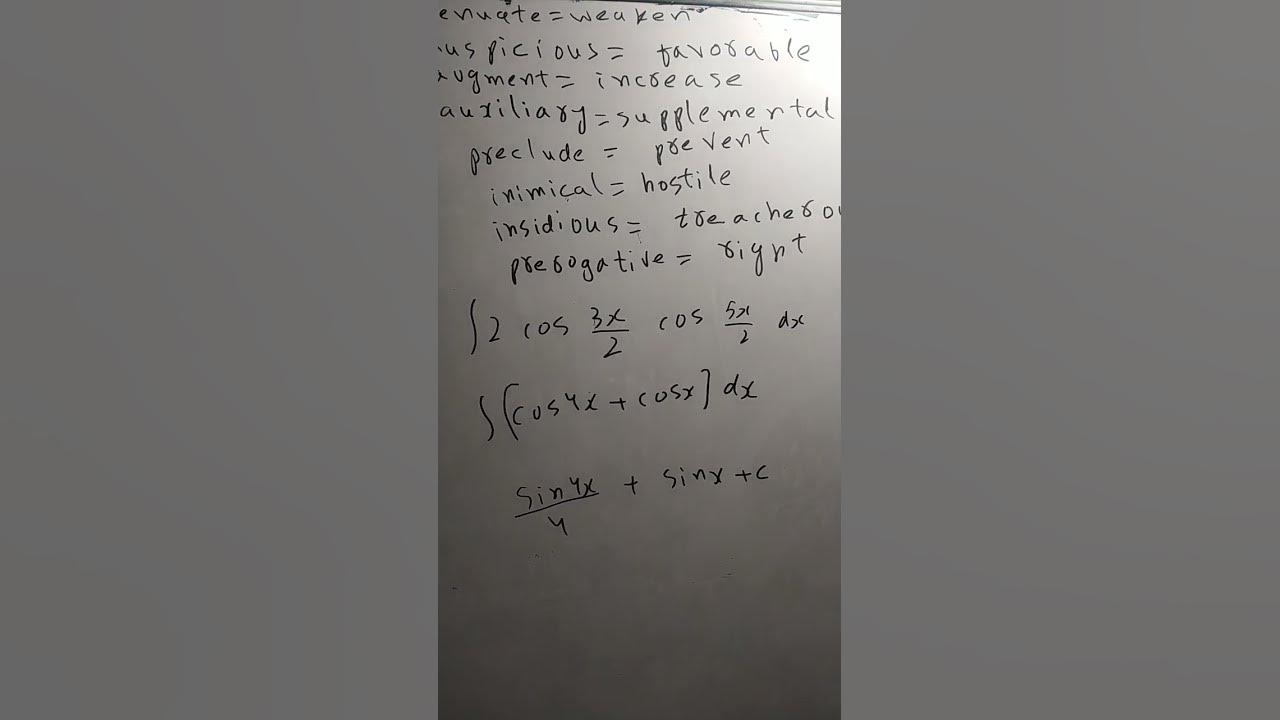 enuate = weaken
uspicious = favorable
ugment = increase
auxiliary = supplemental
preclude = prevent
inimical = hostile
insidious = treacherou
prerogative = right
∫ 2 cos 3x/2 cos 5x/2 dx
∫ [cos 4x + cos x] dx
sin 4x/4 + sin x + c